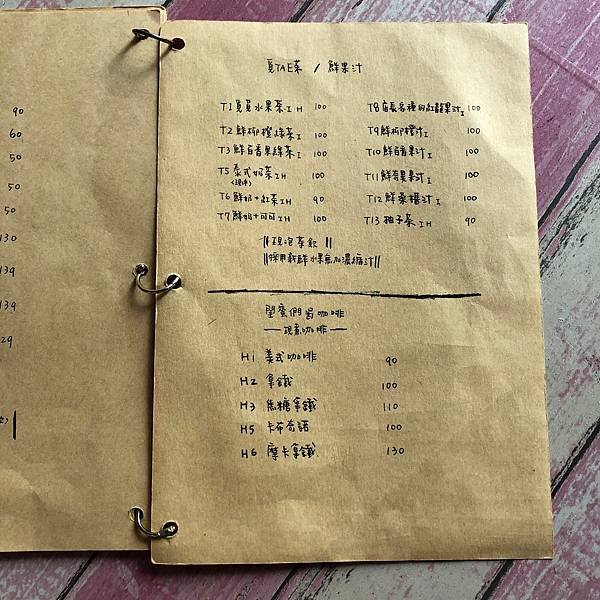 90
60
50
50
50
130
139
139
129
覓TAE茶 / 鮮果汁
T1覓覓水果茶I H 100
T2鮮柳橙綠茶I 100
T3鮮百香果綠茶I 100
T5泰式奶茶I H 100
T6鮮奶+紅茶I H 90
T7鮮奶+可可I H 100
T8店長名種的紅龍果汁I 100
T9鮮柳橙汁I 100
T10鮮百香果汁I 100
T11鮮奇異果汁I 100
T12鮮桑椹汁I 100
T13柚子茶I H 90
||現泡茶飲||
||採用新鮮水果無加濃縮汁||
咖啡
現煮咖啡
H1 美式咖啡 90
H2 拿鐵 100
H3 焦糖拿鐵 110
H5 卡布奇諾 100
H6 摩卡拿鐵 130